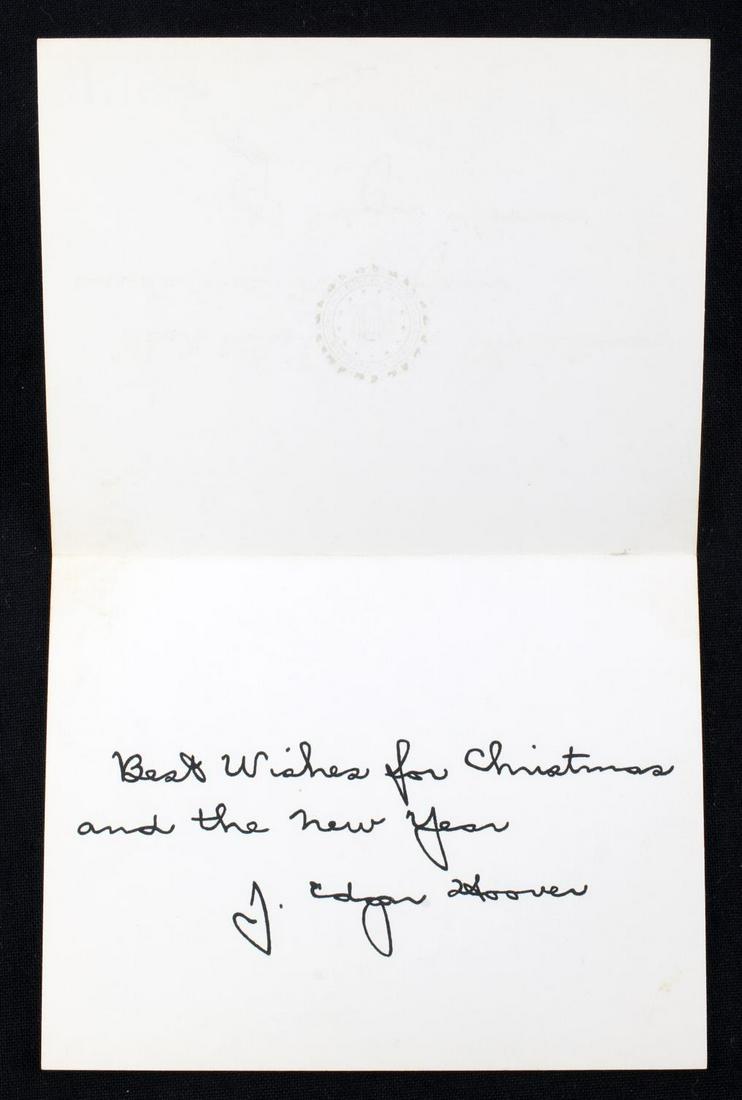 Best Wishes for Christmas
and the New Year
J. Edgar Hoover